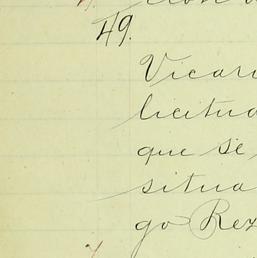 49.
Vicari
licitud
que se
situa
go Rex